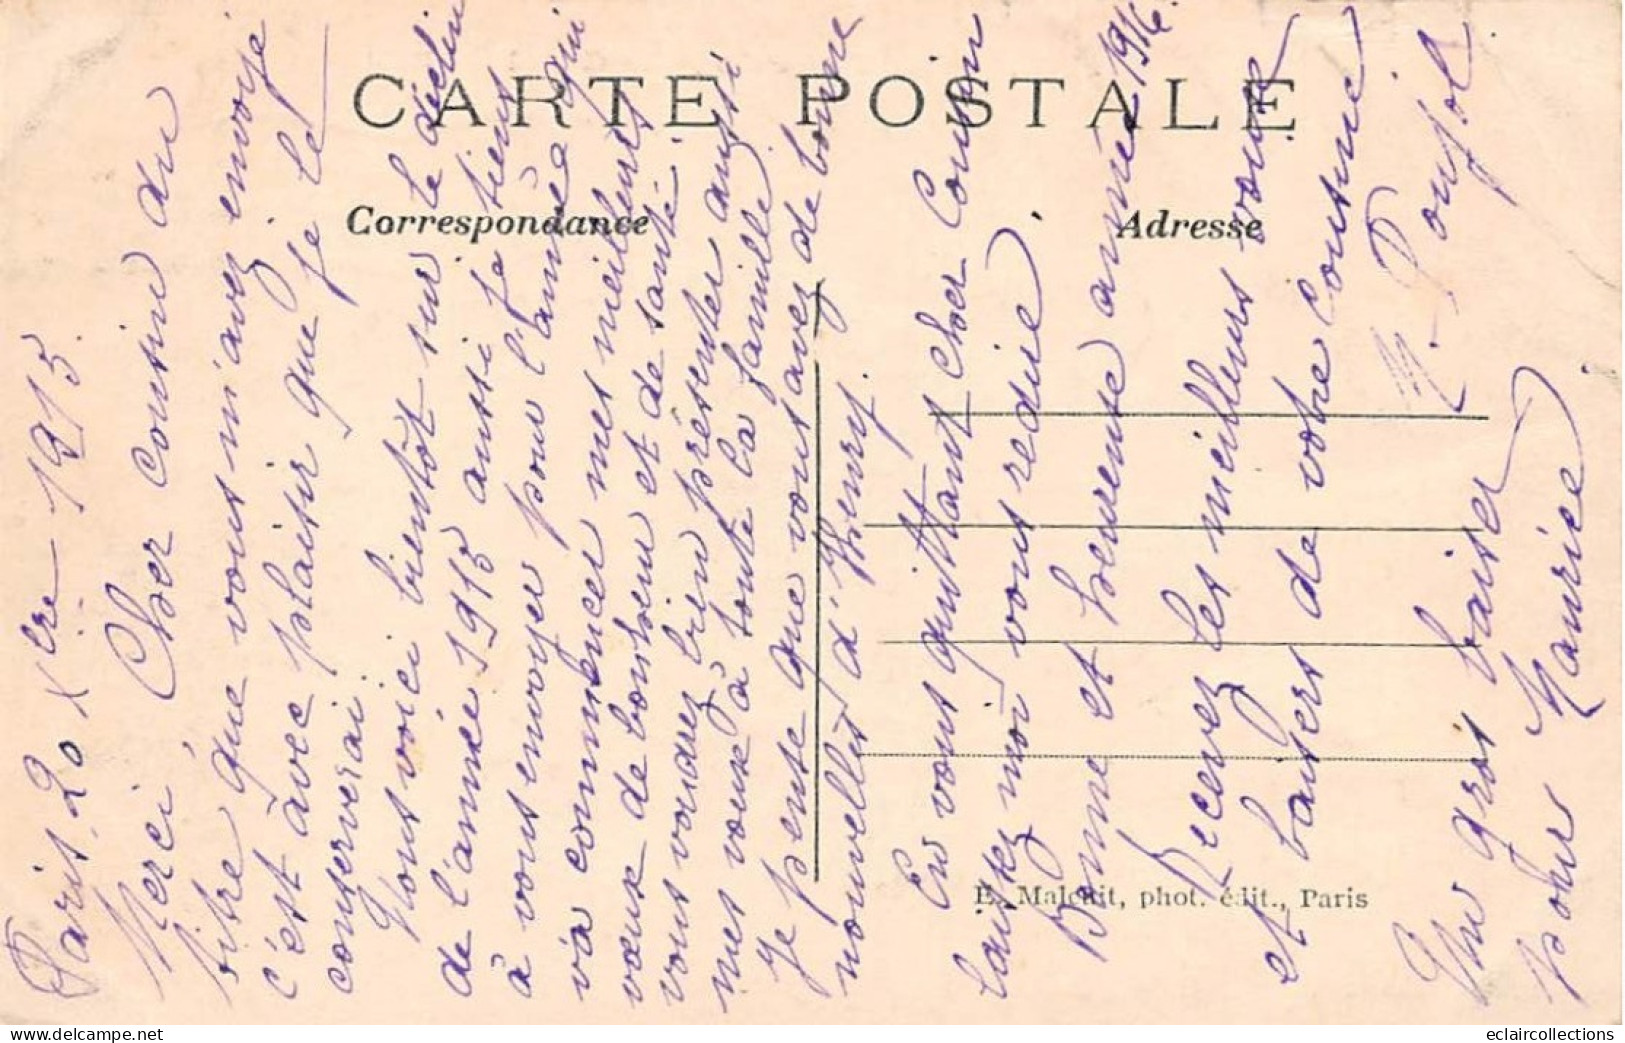 CARTE POSTALE
Correspondance
Adresse
Paris 20 Xbre 1915
Cher Cousin
Merci, du
titre que vous m'avez envoyé
c'est avec plaisir que je le
conserverai.
Nous voici bientôt sur le déclin
de l'année 1915 aussi je tiens
à vous envoyer pour l'année qui
va commencer mes meilleurs
vœux de bonheur et de santé.
vous voudrez bien présenter aussi
mes vœux à toute la famille
Je pense que vous avez de bonne
nouvelles d'Henry.
En vous quittant Cher Cousin
laissez moi vous redire,
Bonne et heureuse année 1916.
Recevez les meilleurs vœux
et baisers de votre Cousine
M. Poujol
Un gros baiser
pour Maurice
E. Malcuit, phot. édit., Paris
eclaircollections